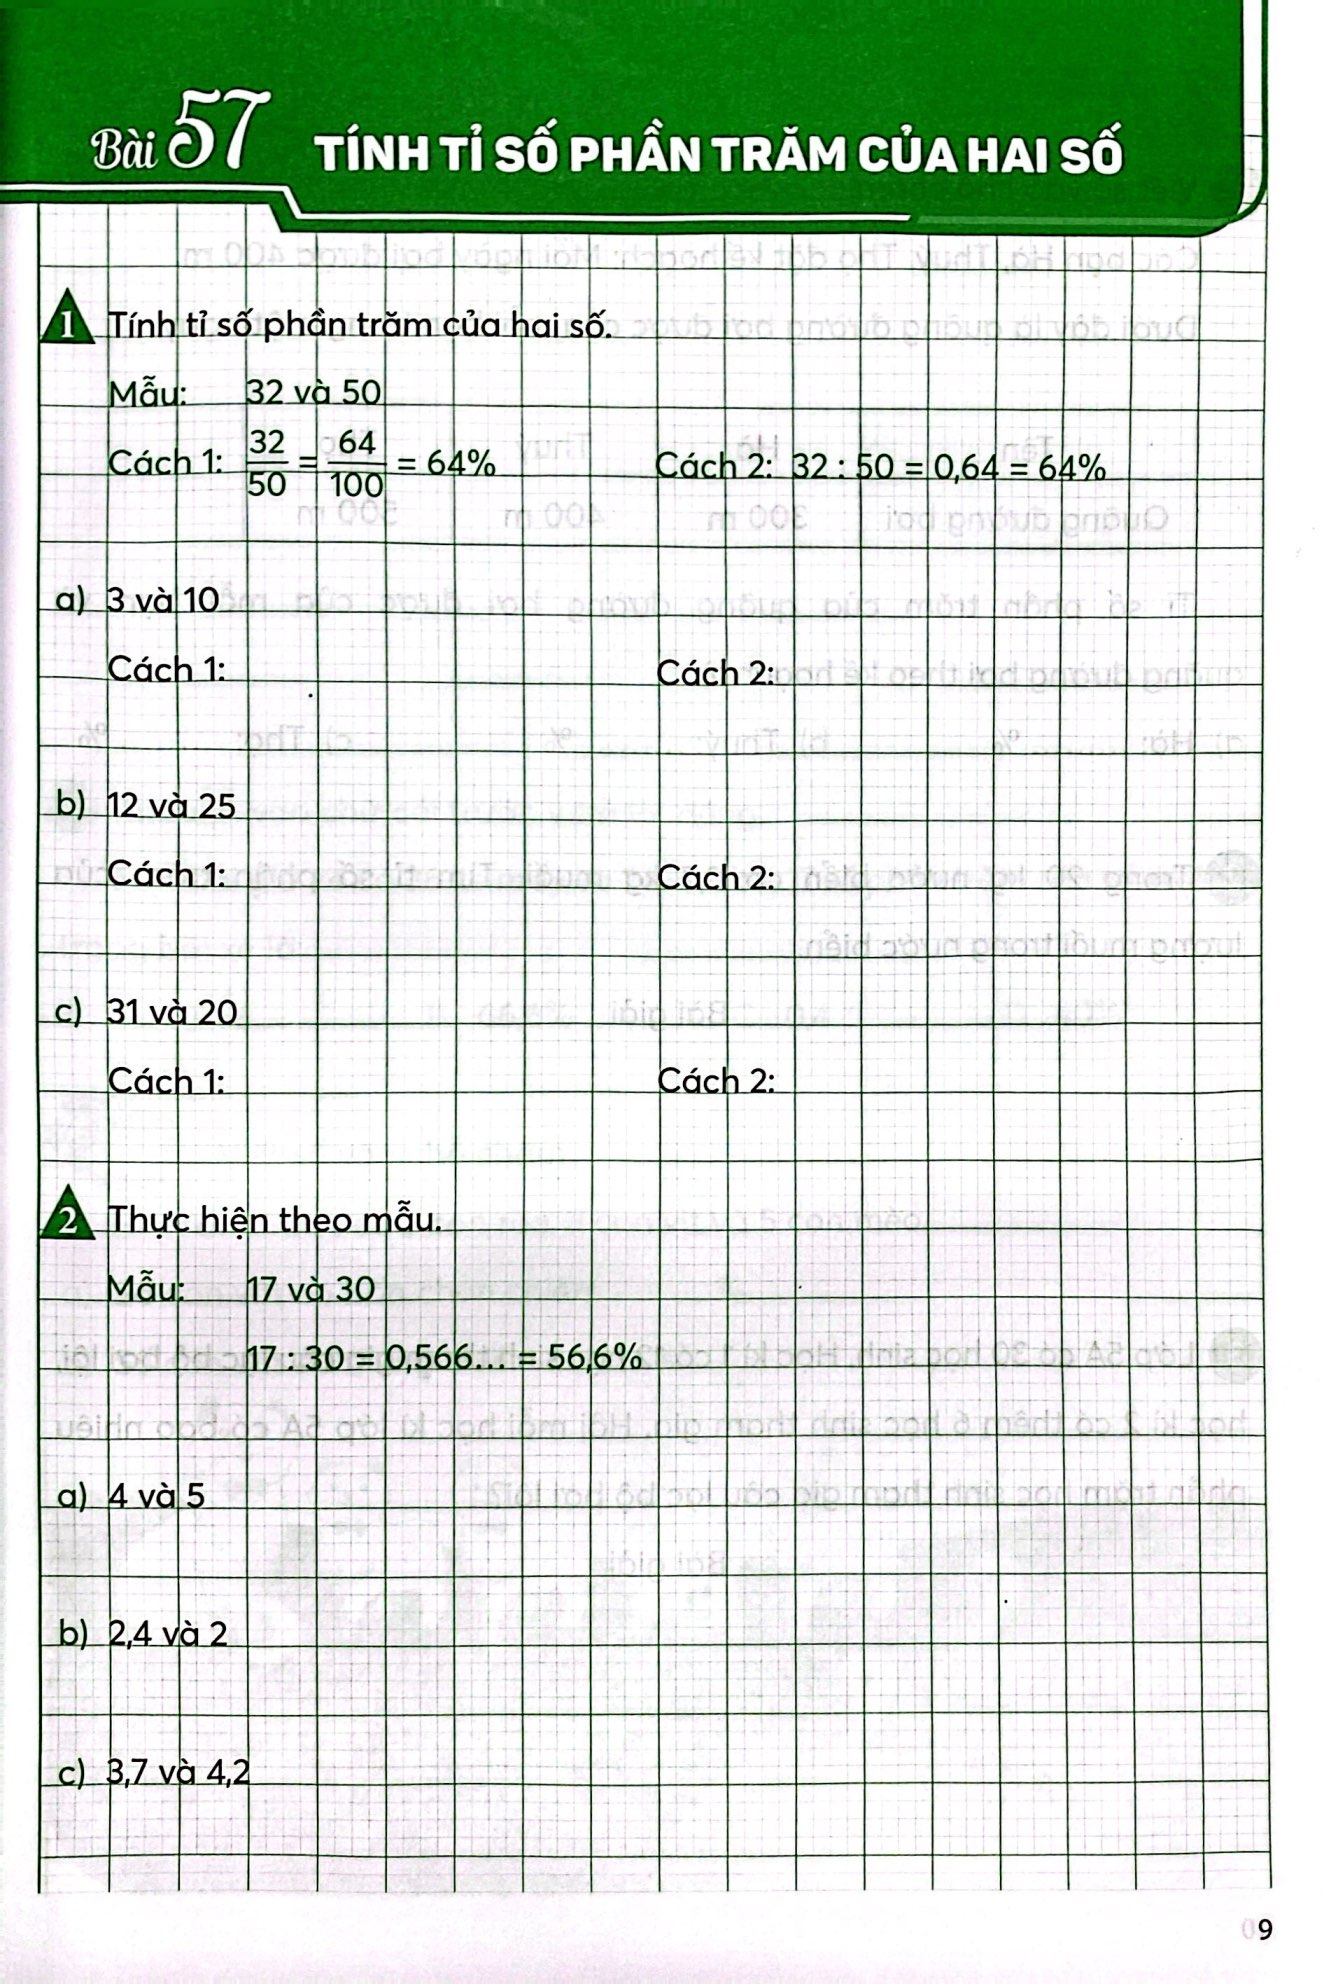 Bài 57 TÍNH TỈ SỐ PHẦN TRĂM CỦA HAI SỐ
1 Tính tỉ số phần trăm của hai số.
Mẫu: 32 và 50
Cách 1: 32/50 = 64/100 = 64% Cách 2: 32 : 50 = 0,64 = 64%
a) 3 và 10
Cách 1: Cách 2:
b) 12 và 25
Cách 1: Cách 2:
c) 31 và 20
Cách 1: Cách 2:
2 Thực hiện theo mẫu.
Mẫu: 17 và 30
17 : 30 = 0,566... = 56,6%
a) 4 và 5
b) 2,4 và 2
c) 3,7 và 4,2
9